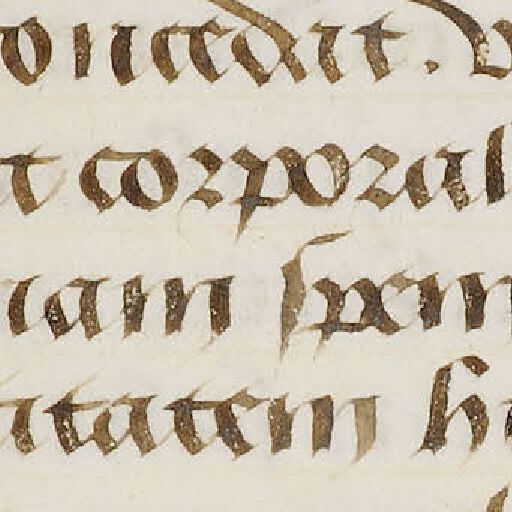 oncedit. v
t corporal
nam spem
itatem h